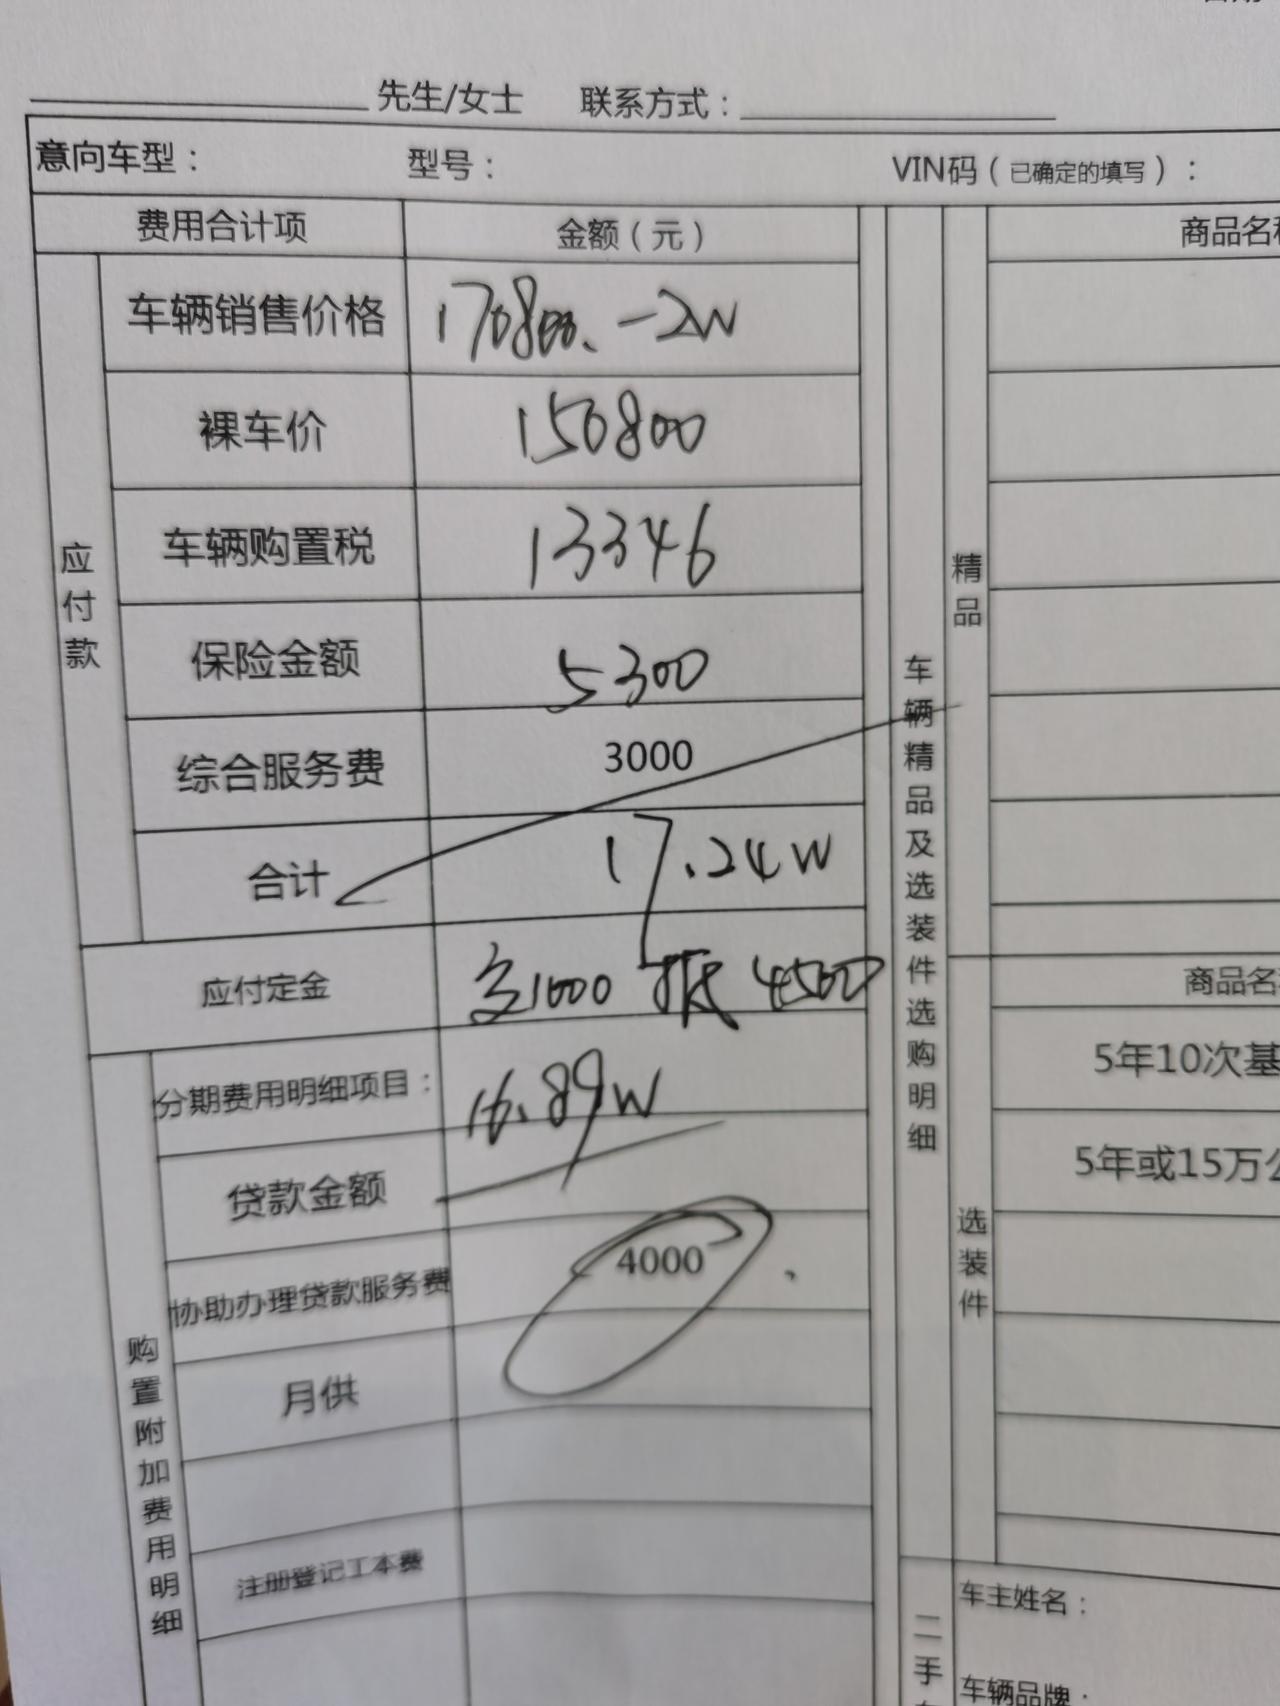 先生/女士 联系方式：
意向车型： 型号： VIN码（已确定的填写）：
费用合计项 金额（元） 商品名
应付款
车辆销售价格 170800. -2W
裸车价 150800
车辆购置税 13346
保险金额 5300
综合服务费 3000
合计 17.24W
应付定金 交1000 抵 4500
购置附加费用明细
分期费用明细项目： 16.89W
贷款金额
协助办理贷款服务费 4000
月供
注册登记工本费
车辆精品及选装件选购明细
精品
选装件
商品名
5年10次基
5年或15万公
二手
车主姓名：
车辆品牌：